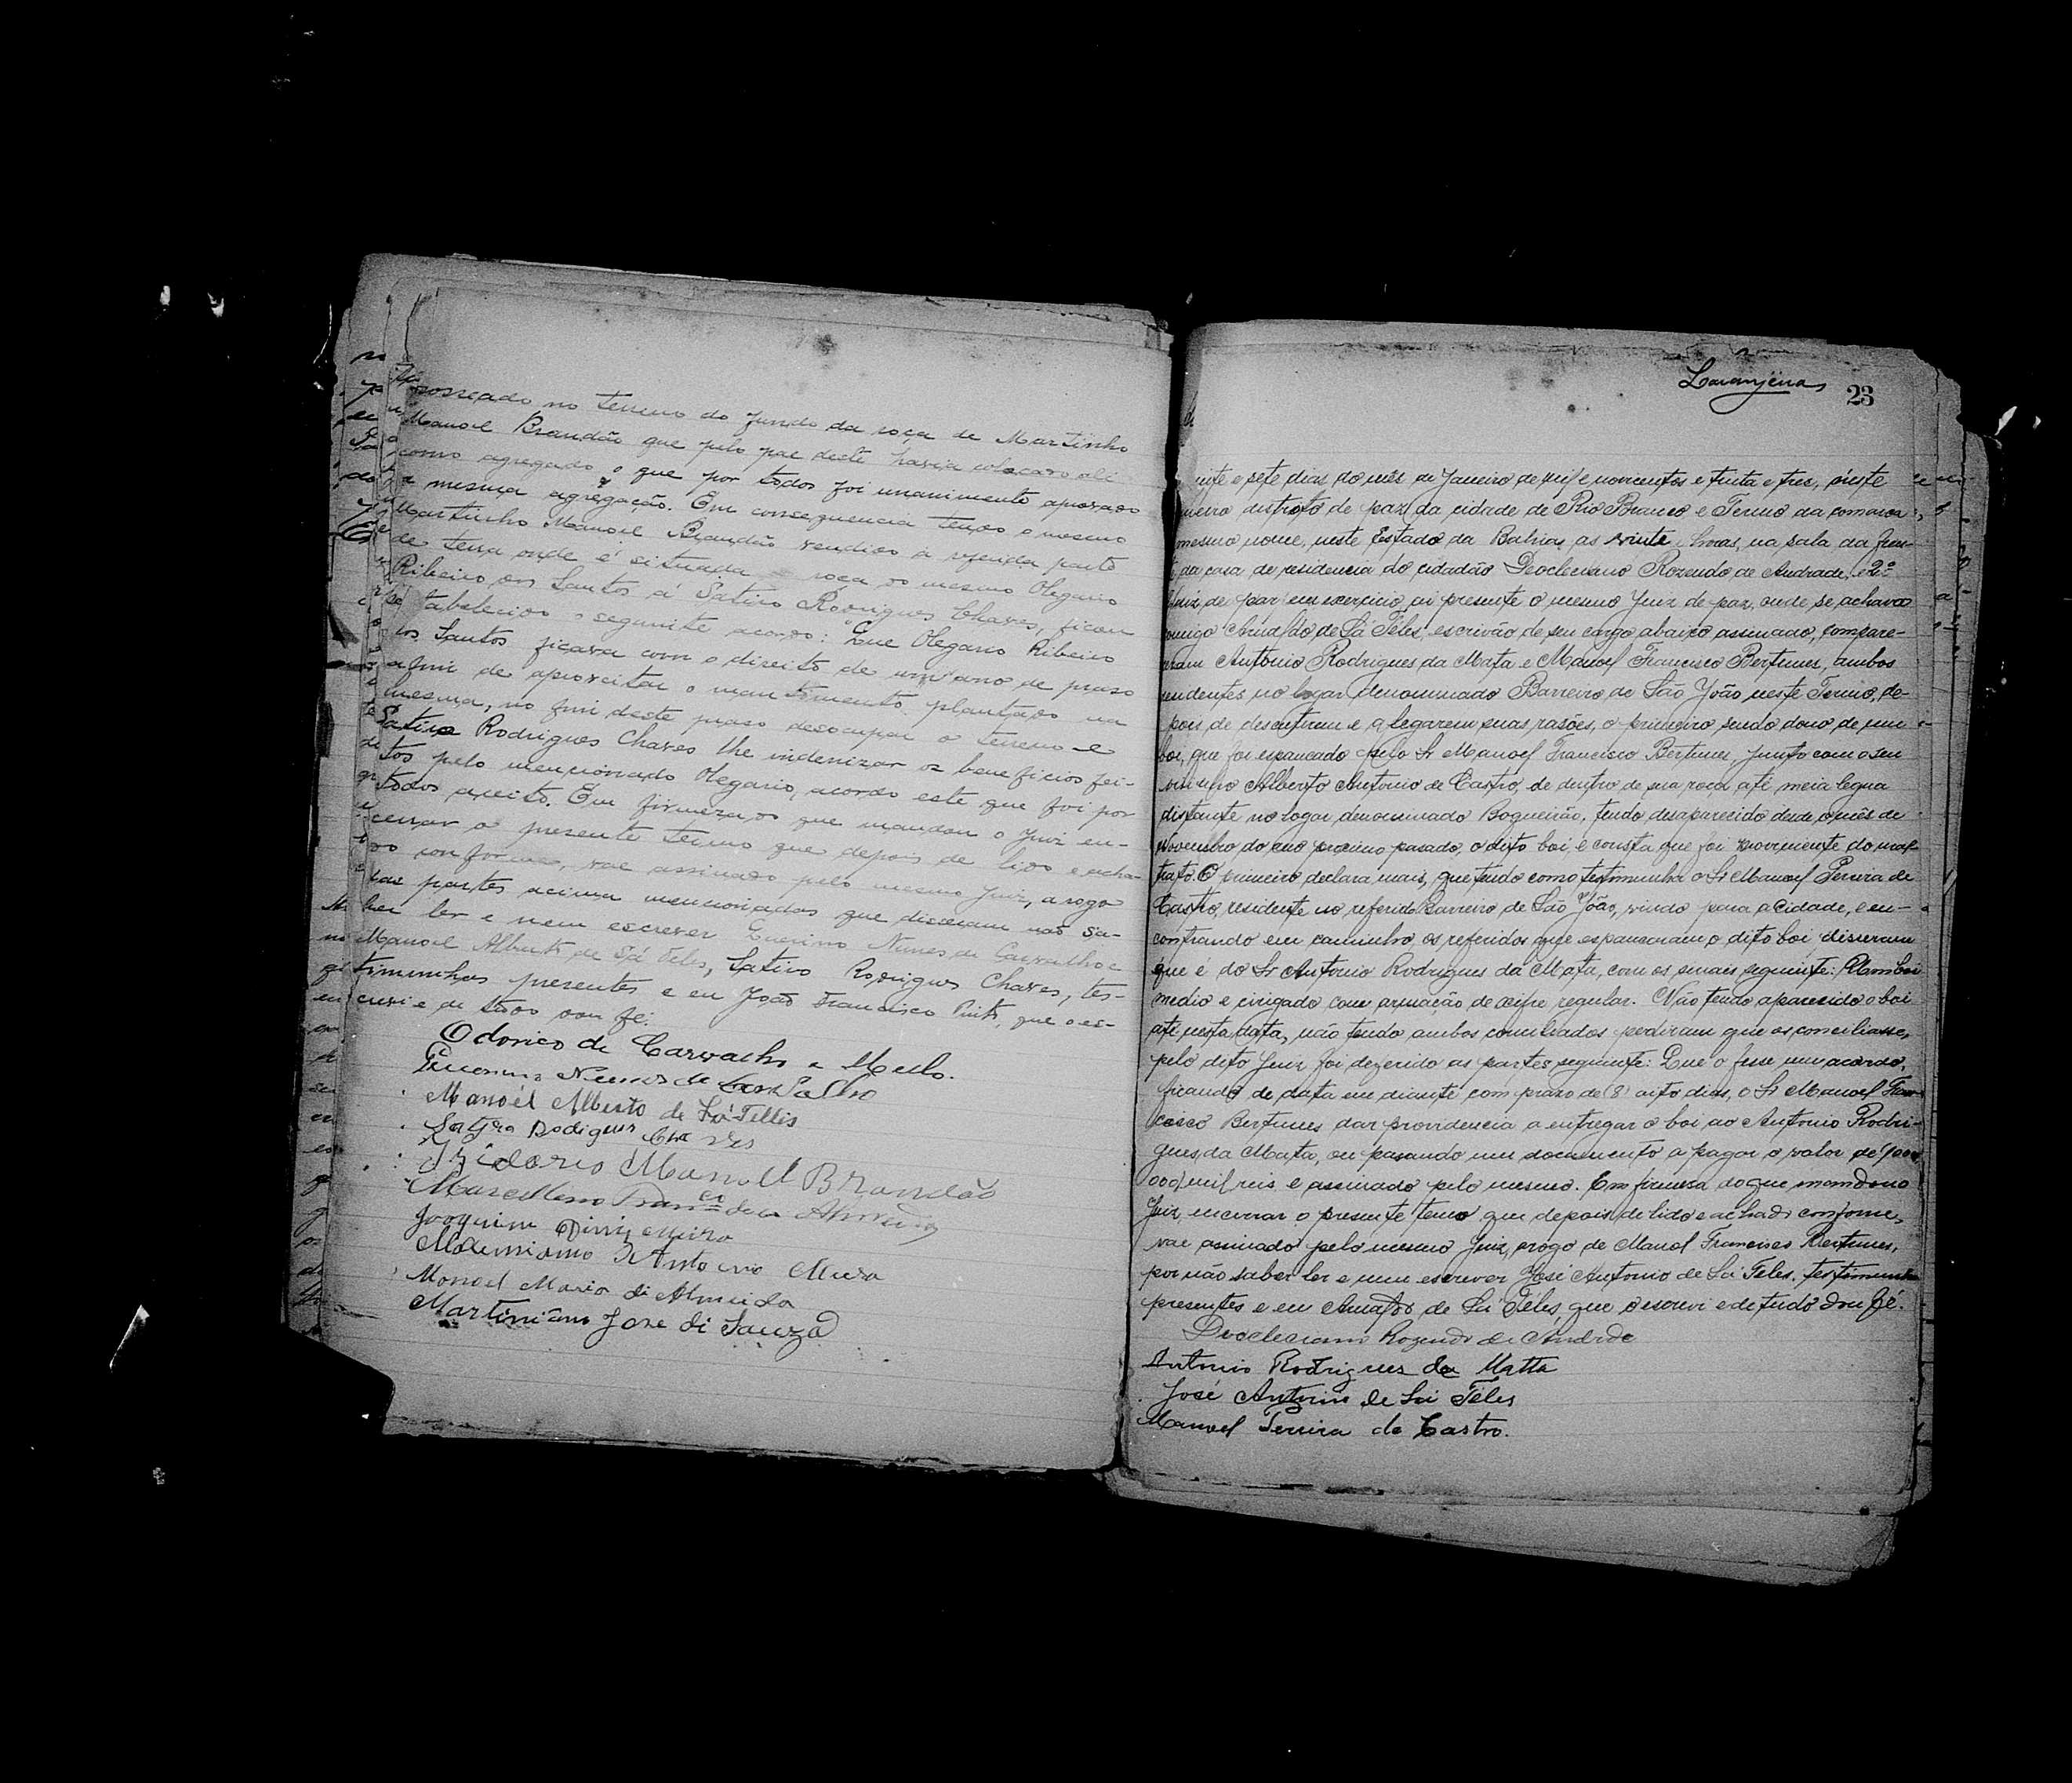 possado no terreno do fundo da roça de Martinho
Manoel Brandão que pelo pae deste havia colocado ali
como agregado, o que por todos foi unanimente aprovado
a mesma agregação. Em consequencia tendo o mesmo
Martinho Manoel Brandão vendido a referida parte
de terra onde é situada roça do mesmo Olegario
Ribeiro dos Santos á Satiro Rodrigues Chaves, ficou
estabelecido o seguinte acordo: Que Olegario Ribeiro
dos Santos ficava com o direito de um ano de praso
afim de aproveitar o mantimento plantado na
mesma, no fim deste praso desocupar o terreno e
Satiro Rodrigues Chaves lhe indenizar os beneficios fei-
tos pelo mencionado Olegario, acordo este que foi por
todos aceito. Em firmeza do que mandou o Juiz en-
cerrar o presente termo que depois de lido e acha-
do conforme, vae assinado pelo mesmo Juiz, a rogo
das partes acima mencionadas que disseram não sa-
ber ler e nem escrever Guerino Nunes de Carvalho e
Manoel Alberto de Sá Teles, Satiro Rodrigues Chaves, tes-
timunhas presentes e eu João Francisco Pinto, que o es-
crevi e de tudo dou fé.
Odorico de Carvalho e Mello.
Nunes de Carvalho
Manoél Alberto de Sá Tellis
Satyro Rodigues Chaves
Izidorio Manoel Brandão
Marcellino Franco de Almeida
Joaquim Diniz Meira
Antonio Meira
Manoel Maria di Almeida
Martiniano Jose di Souza
Laranjeiras
23
inte e sete dias do mês de Janeiro de mil e novicentos e trinta e tres, n'este
meiro distroto de paz da cidade de Rio Branco e Termo da comarca
mesmo nome, neste Estado da Bahia, as vinte horas, na sala da fren-
te da casa de residencia do cidadão Deocleciano Rozendo de Andrade, 2º
Juiz de paz em exercicio, ai presente o mesmo Juiz de paz, onde se achava
comigo Arnaldo de Sá Teles, escrivão de seu cargo abaixo assinado, compare-
ceram Antonio Rodrigues da Mata e Manoel Francisco Bertunes, ambos
residentes no logar denominado Barreiro de São João neste Termo, de-
pois de descutirem e alegarem suas rasões, o primeiro sendo dono de um
boi, que foi espancado pelo Sr Manoel Francisco Bertunes, junto com o seu
visinho Alberto Antonio de Castro, de dentro de sua roça até meia legua
distante no logar denominado Boqueirão, tendo desaparecido desde o mês de
Novembro do ano proximo pasado, o dito boi, e consta que foi provimente do mal
trato. O primeiro declara mais, que tendo como testimunha o Sr Manoel Pereira de
Castro, residente no referido Barreiro de São João, vindo para a Cidade, e en-
contrando em caminho os referidos que espancaram o dito boi diseram
que é do Sr Antonio Rodrigues da Mata, com os sinais seguinte: Um boi
medio e cirigado com armação de xifre regular. Não tendo aparecido o boi
até nesta data, não tendo ambos conciliados pediram que os conciliasse,
pelo dito Juiz foi deferido as partes seguinte: Que o fise um acordo,
ficando de data em diante com praso de (8) oito dias, o Sr Manoel Fran-
cisco Bertunes dar providencia a entregar o boi ao Antonio Rodri-
gues da Mata, ou pasando um documento a pagar o valor de (100
000) mil reis e assinado pelo mesmo. Em firmesa do que mandou o
Juiz encerrar o presente termo que depois de lido e achado conforme,
vae assinado pelo mesmo Juiz, arogo de Manoel Francisco Bertunes,
por não saber ler e nem escrever José Antonio de Sá Teles, testimunha
presentes e eu Arnaldo de Sá Teles, que o escrevi e de tudo dou fé.
Deocleciano Rozendo de Andrade
Antonio Rodrigues da Matta
José Antonio de Sá Téles
Manoel Pereira de Castro.